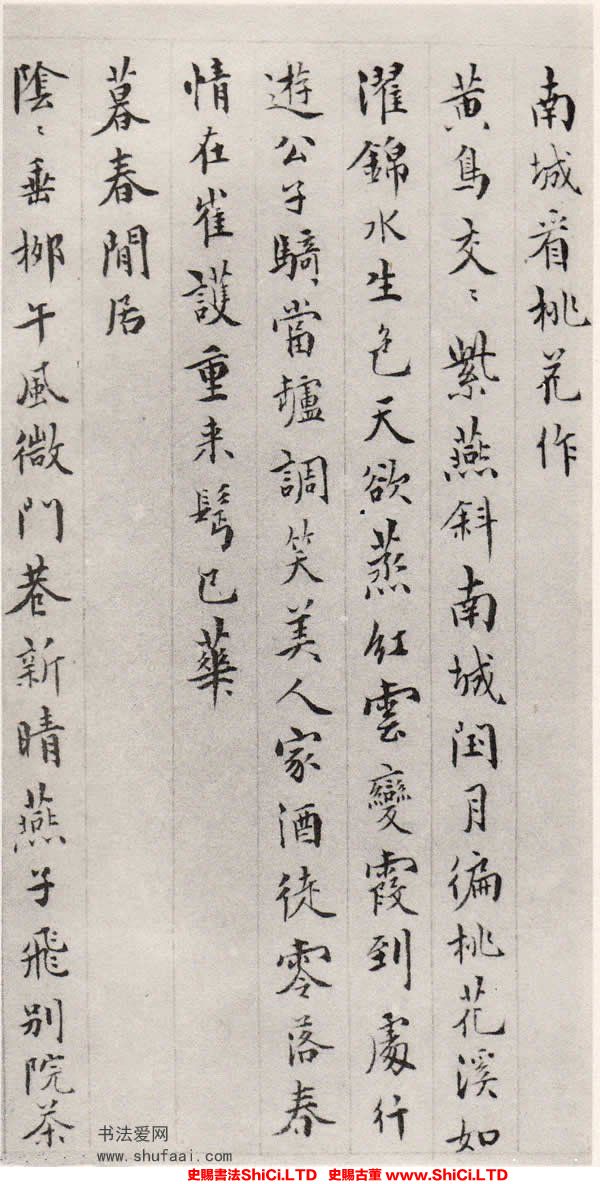 南城看桃花作
黃鳥交〻紫燕斜南城閏月徧桃花溪如
濯錦水生色天欲蒸紅雲變霞到處行
遊公子騎當壚調笑美人家酒徒零落春
情在崔護重来鬢已華
暮春閒居
陰〻垂柳午風微門巷新晴燕子飛別院茶
书法爱网
www.shufaai.com
史賜書法ShiCi.LTD 史賜古董 www.ShiCi.LTD